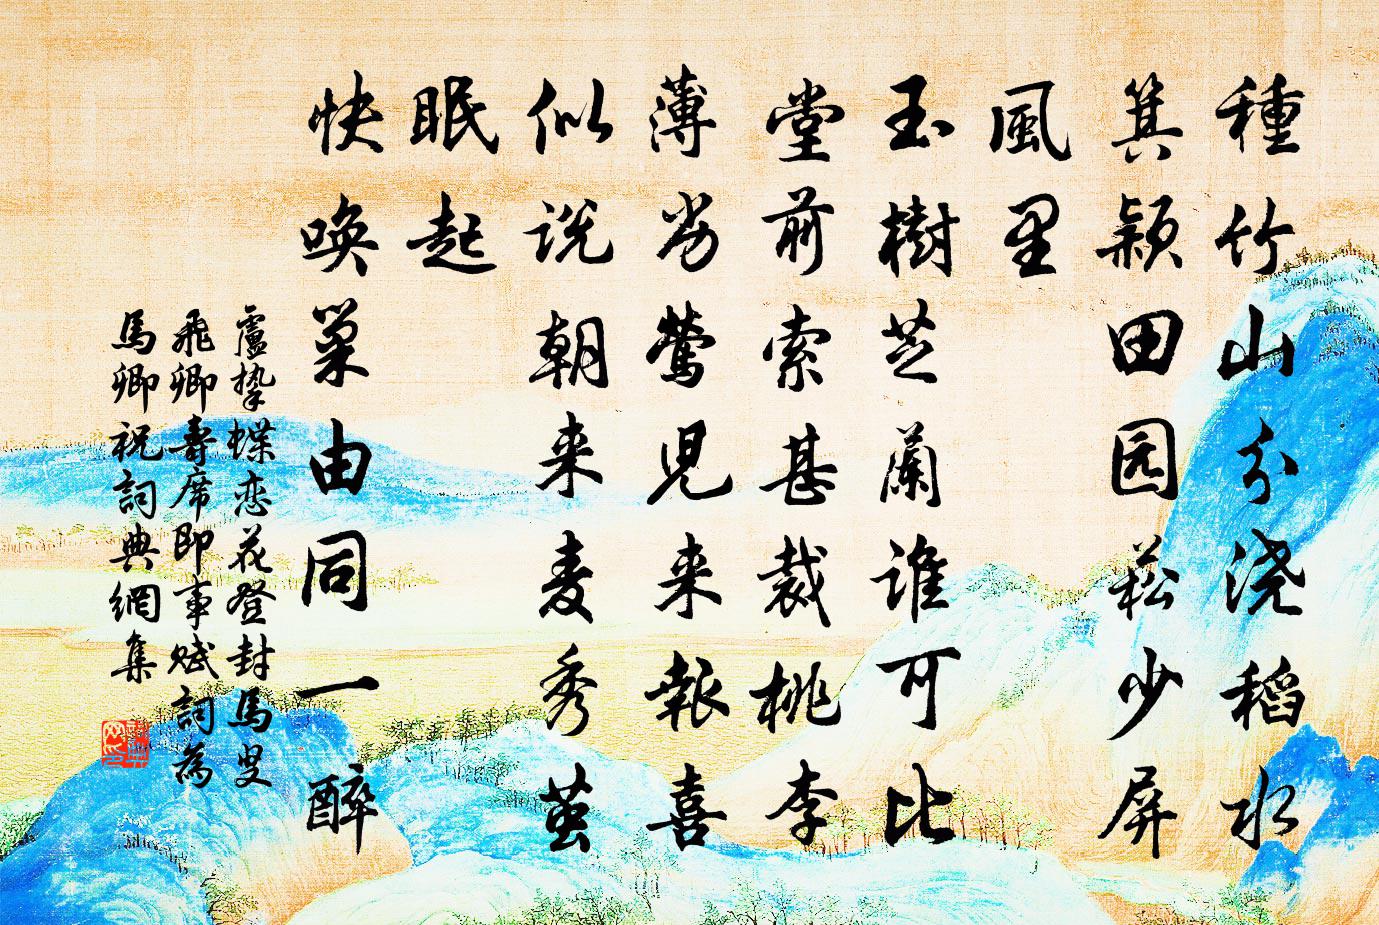 種竹山分浇稻水
箕颖田园菘少屏
風里
玉樹芝蘭谁可比
堂前索甚裁桃李
薄劣鶯児来報喜
似说朝来麦秀茧
眠起
快唤巢由同一醉
盧挚蝶恋花登封馬叟
飛卿壽席即事赋詞為
馬卿祝詞典網集